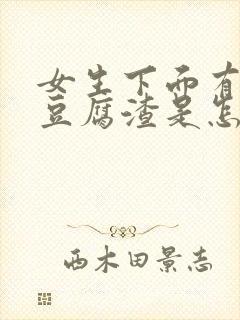 女生下面有
豆腐渣是怎
西木田景志